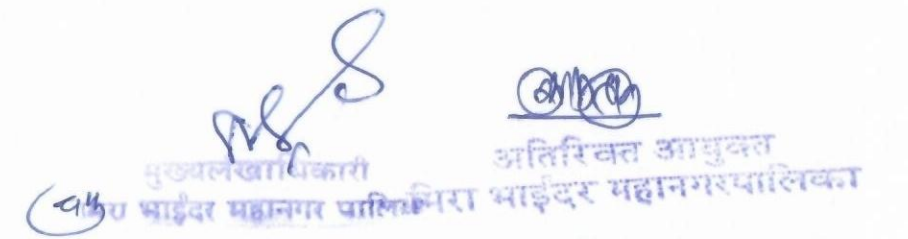 मुख्यलेखाधिकारी
भाईंदर महानगर पालिका
अतिरिक्त आयुक्त
मिरा भाईंदर महानगरपालिका